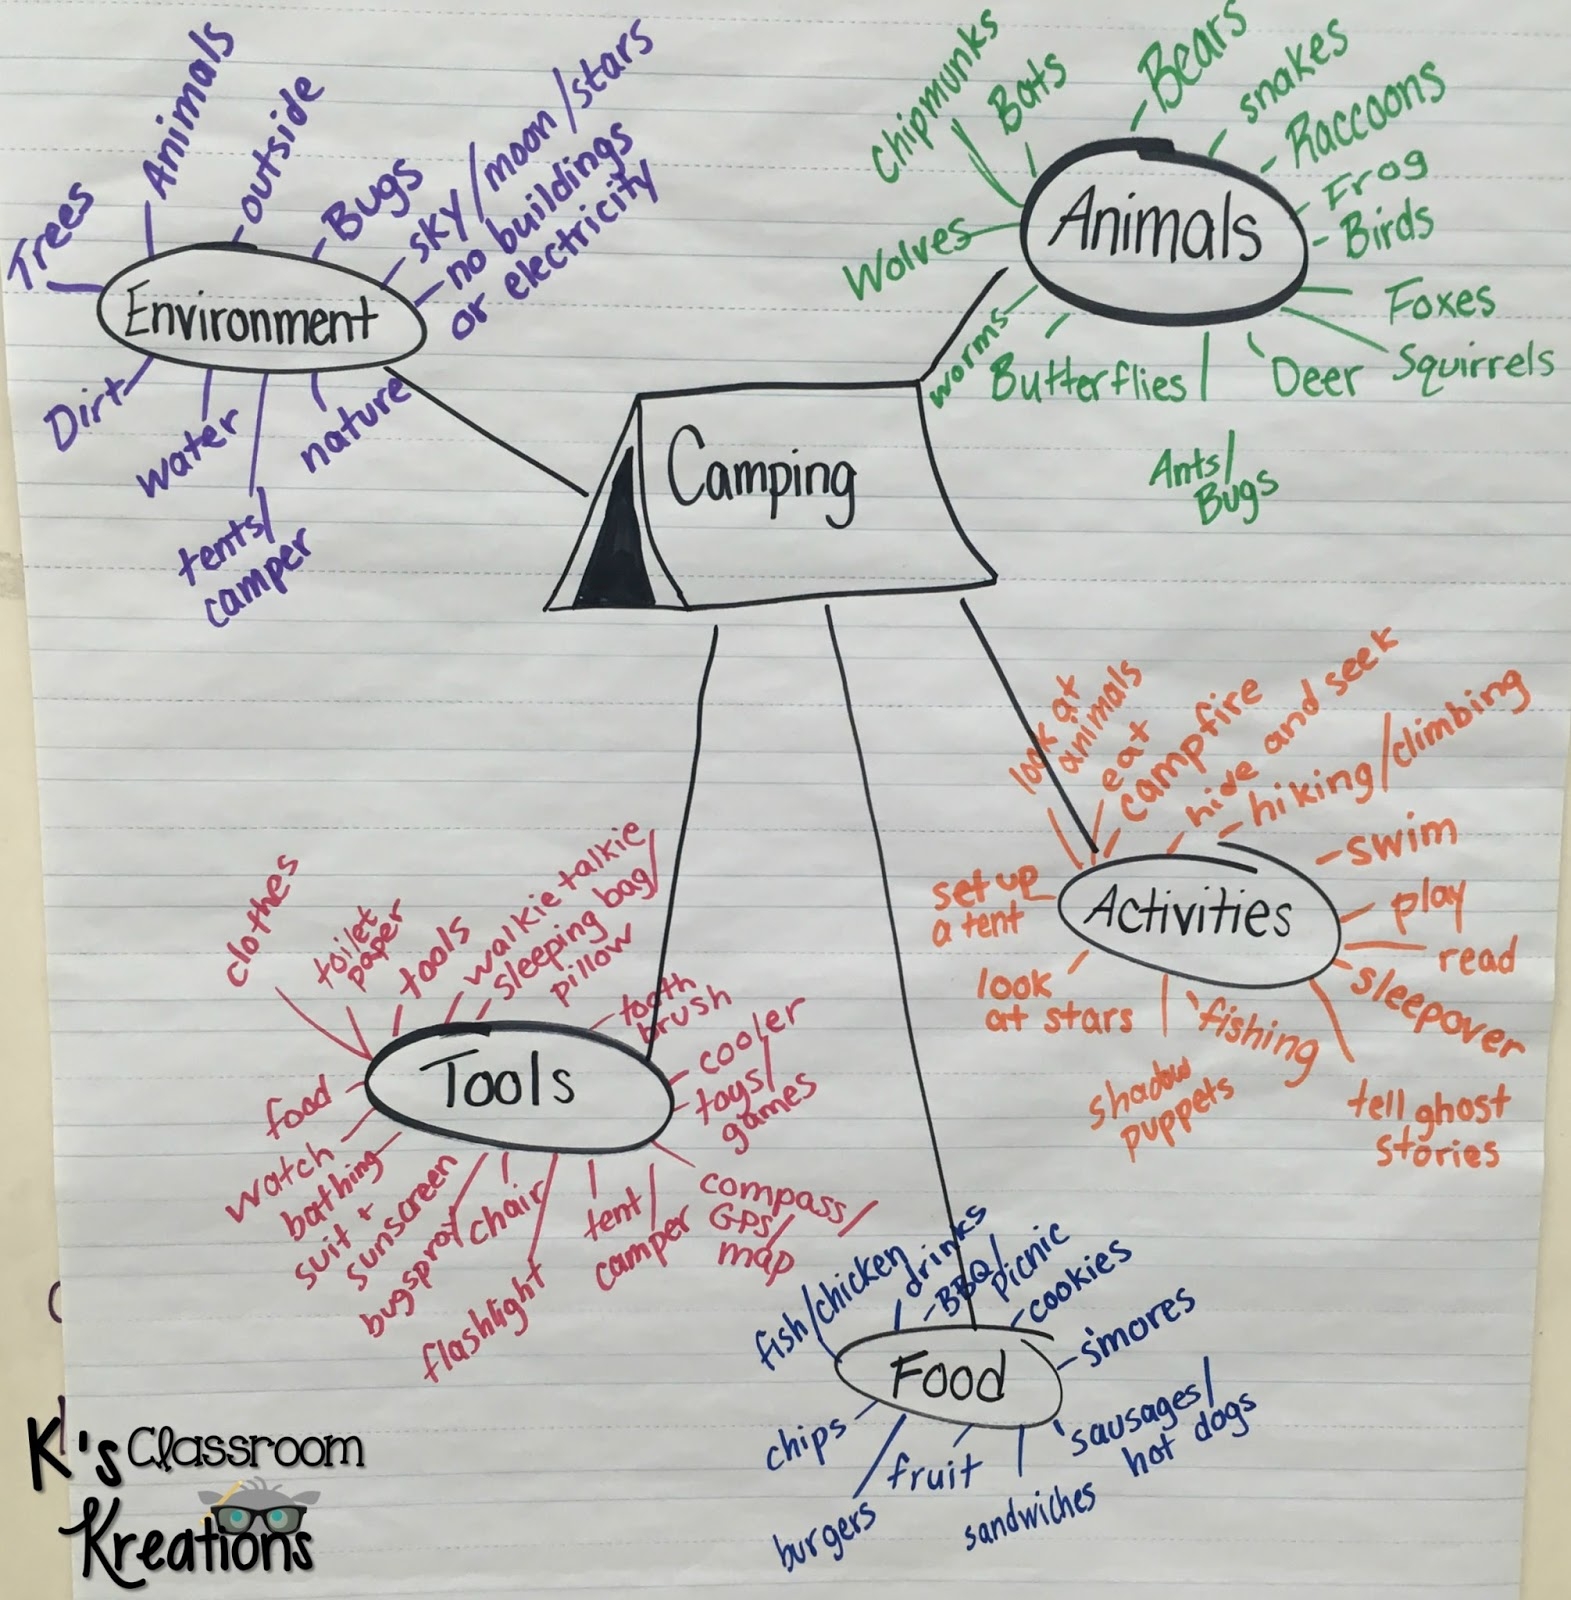 Camping
Environment
Trees
Animals
outside
Bugs
sky/moon/stars
no buildings
or electricity
nature
tents/
camper
water
Dirt
Animals
Wolves
Chipmunks
Bats
Bears
snakes
Raccoons
Frog
Birds
Foxes
Squirrels
Deer
Ants/
Bugs
Butterflies
worms
Activities
set up
a tent
look at
animals
eat
campfire
hide and seek
hiking/climbing
swim
play
read
sleepover
tell ghost
stories
fishing
shadow
puppets
look
at stars
Tools
clothes
toilet
paper
tools
walkie talkie
sleeping bag/
pillow
tooth
brush
cooler
toys/
games
compass/
GPS/
map
tent/
camper
flashlight
chair
bugspray
sunscreen
bathing
suit +
watch
food
Food
fish/chicken
drinks
BBQ/
picnic
cookies
s'mores
sausages/
hot dogs
sandwiches
fruit
burgers
chips
K's Classroom
Kreations